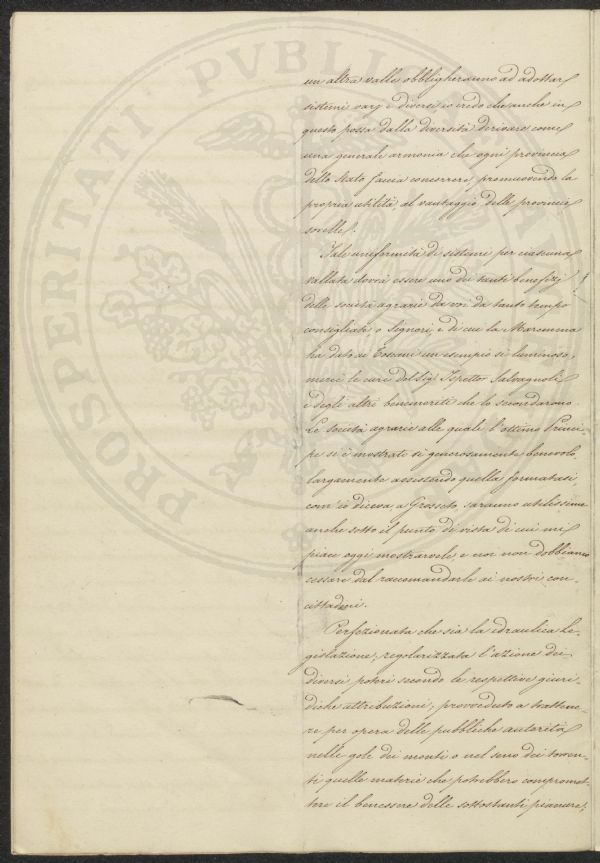 un altra valle obbligheranno ad adottare
sistemi varj e diversi, io credo che anche in
questo possa dalla diversità derivare come
una generale armonia che ogni provincia
dello Stato faccia concorrere, promuovendo la
propria utilità, al vantaggio delle provincie
sorelle.
Tale uniformità di sistemi per ciascuna
vallata dovrà essere uno dei tanti benefizj
delle società agrarie da voi da tanto tempo
consigliate o Signori, e di cui la Maremma
ha dato ai Toscani un esempio sì luminoso,
mercè le cure del Sig. Ispettor Salvagnoli
e degli altri benemeriti che lo secondarono.
Le società agrarie alle quale l'ottimo Princi-
pe si è mostrato sì generosamente benevolo,
largamente assistendo quella formatasi,
com'io diceva a Grosseto, saranno utilissime
anche sotto il punto di vista di cui mi
piace oggi mostrarvele, e noi non dobbiamo
cessare dal raccomandarle ai nostri con-
cittadini.
Perfezionata che sia la idraulica le-
gislazione, regolarizzata l'azione dei
diversi poteri secondo le respettive giuri-
diche attribuzioni, provveduto a trattene-
re per opera delle pubbliche autorità
nelle gole dei monti o nel seno dei torren-
ti quelle materie che potrebbero compromet-
tere il benessere delle sottostanti pianure;
PROSPERITATI PVBLICAE